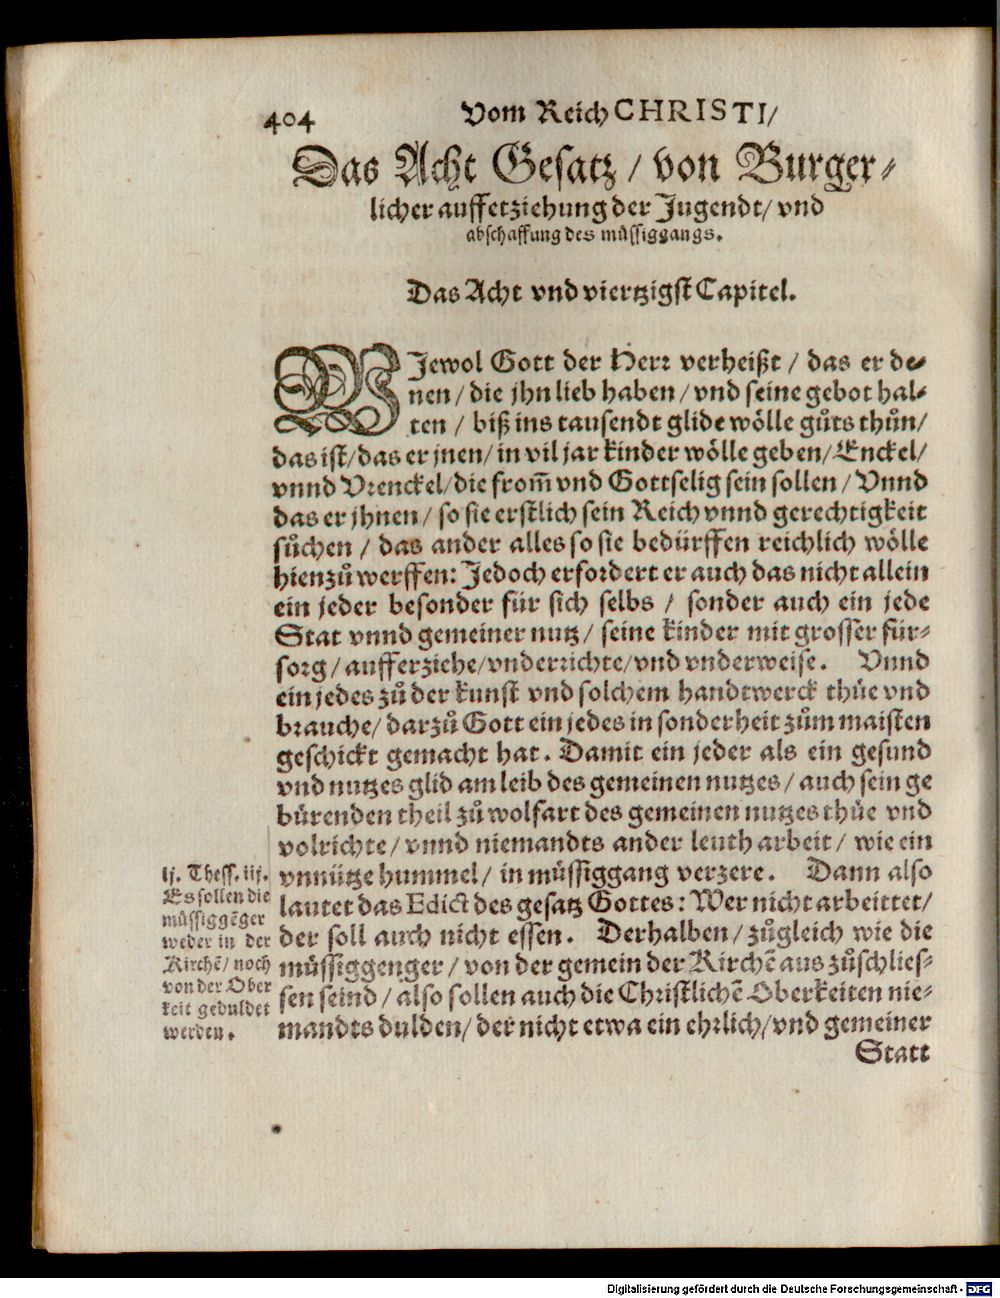 404
Vom Reich CHRISTI/
Das Acht Gesatz / von Burger-
licher aufferziehung der Jugendt/ vnd
abschaffung des müssiggangs.
Das Acht vnd viertzigst Capitel.
WJewol Gott der Herr verheißt / das er de-
nen / die jhn lieb haben / vnd seine gebot hal-
ten / biß ins tausendt glide wölle gůts thůn/
das ist/ das er jnen/ in vil jar kinder wölle geben/ Enckel/
vnnd Vrenckel/die from̃ vnd Gottselig sein sollen / Vnnd
das er jhnen / so sie erstlich sein Reich vnnd gerechtigkeit
sůchen / das ander alles so sie bedürffen reichlich wölle
hienzů werffen: Jedoch erfordert er auch das nicht allein
ein jeder besonder für sich selbs / sonder auch ein jede
Stat vnnd gemeiner nutz / seine kinder mit grosser für-
sorg / aufferziehe/vnderrichte/vnd vnderweise. Vnnd
ein jedes zů der kunst vnd solchem handtwerck thüe vnd
brauche/ darzů Gott ein jedes in sonderheit zům maisten
geschickt gemacht hat. Damit ein jeder als ein gesund
vnd nutzes glid am leib des gemeinen nutzes / auch sein ge
bürenden theil zů wolfart des gemeinen nutzes thüe vnd
volrichte / vnnd niemandts ander leuth arbeit / wie ein
vnnütze hummel / in müssiggang verzere. Dann also
lautet das Edict des gesatz Gottes: Wer nicht arbeittet/
der soll auch nicht essen. Derhalben / zůgleich wie die
müssiggenger / von der gemein der Kirchẽ aus zůschlies-
sen seind / also sollen auch die Christlichẽ Oberkeiten nie-
mandts dulden/ der nicht etwa ein ehrlich/vnd gemeiner
Statt
ij. Thess. iij.
Es sollen die
müssiggẽger
weder in der
Kirchẽ/ noch
von der Ober
keit geduldet
werden.
Digitalisierung gefördert durch die Deutsche Forschungsgemeinschaft - DFG